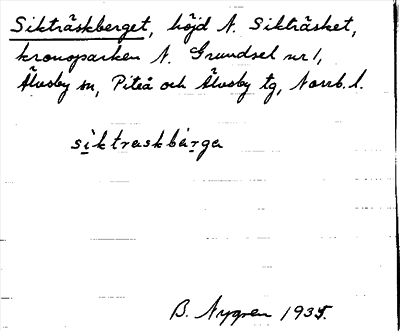 Sikträskberget, höjd N. Sikträsket,
kronoparken N. Grundsel nr 1,
Älvsby sn, Piteå och Älvsby tg, Norrb. l.
siktraskbärga
B. Nygren 1935.